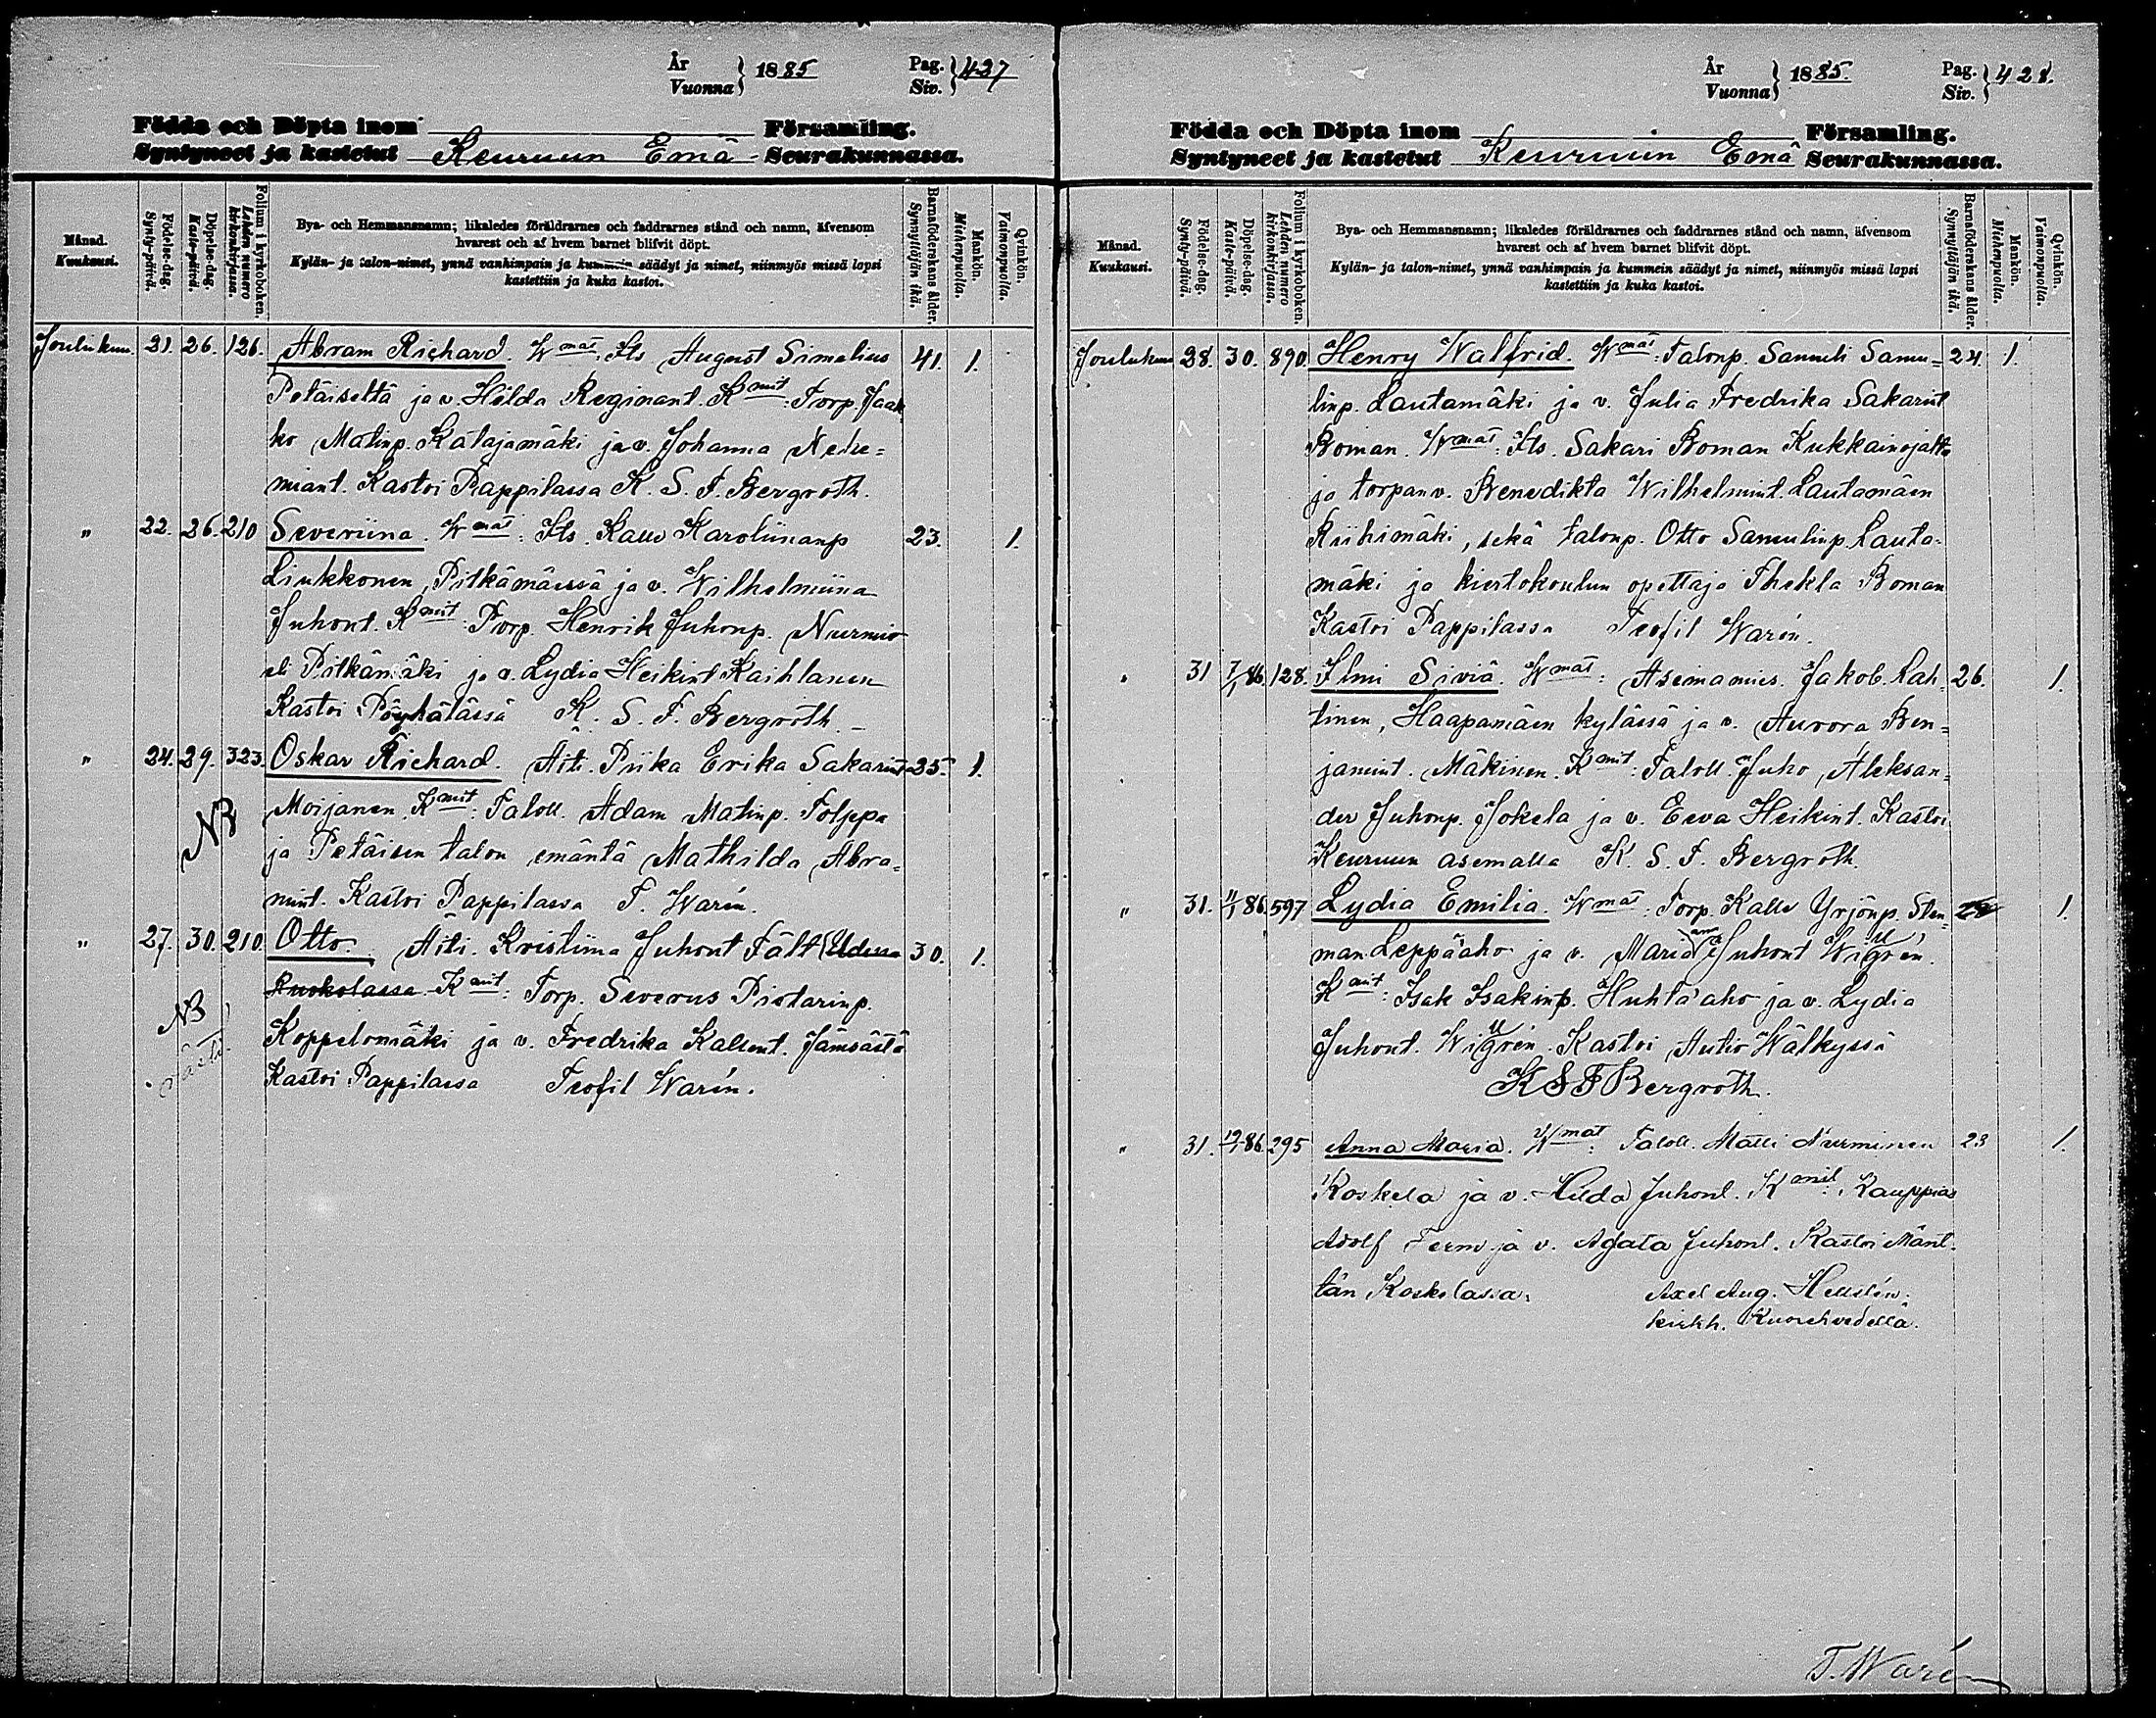 År
Vuonna } 1885
Pag.
Siv. } 427
Födda och Döpta inom Församling.
Syntyneet ja kastetut Keuruun Emä Seurakunnassa.
Månad.
Kuukausi.
Födelse-dag.
Synty-päivä.
Döpelse-dag.
Kaste-päivä.
Folium i kyrkoboken.
Lehden numero kirkonkirjassa.
Bya- och Hemmansnamn; likaledes föräldrarnes och faddrarnes stånd och namn, äfvensom
hvarest och af hvem barnet blifvit döpt.
Kylän- ja talon-nimet, ynnä vanhimpain ja kummein säädyt ja nimet, niinmyös missä lapsi
kastettiin ja kuka kastoi.
Barnaföderskans ålder.
Synnyttäjän ikä.
Mankön.
Miehenpuolia.
Qvinkön.
Vaimonpuolia.
Joulukuu. 21. 26. 126. Abram Richard. Wmat. Its August Simelius 41. 1.
Petäiseltä ja v. Hilda Reginant. Kmit. Torp. Jaak
ko Matinp. Katajamäki ja v. Johanna Nehe=
miant. Kastoi Pappilassa K. S. F. Bergroth.
" 22. 26. 210 Severiina. Wmat: Its. Kalle Karoliinanp 23. 1.
Liukkonen, Pitkämäessä ja v. Wilhelmiina
Juhont. Kmit: Torp. Henrik Juhonp. Nurmio
eli Pitkämäki ja v. Lydia Heikint Kaihlanen
Kastoi Pöyhölässä K. S. F. Bergroth.
" 24. 29. 323. Oskar Richard. Äiti. Piika Erika Sakarint 35. 1.
NB Moijanen. Kmit: Taloll. Adam Matinp. Tolppa
ja Petäisen talon emäntä Mathilda Abra=
mint. Kastoi Pappilassa T. Warén.
" 27. 30. 210. Otto. Äiti. Kristiina Juhont Fält 30. 1.
Ruokolassa. Kmit: Torp. Severus Pietarinp.
NB Koppelomäki ja v. Fredrika Kallent. Jämsästä
Kastoi Pappilassa Teofil Warén.
År
Vuonna } 1885.
Pag.
Siv. } 428.
Födda och Döpta inom Församling.
Syntyneet ja kastetut Keuruun Emä Seurakunnassa.
Månad.
Kuukausi.
Födelse-dag.
Synty-päivä.
Döpelse-dag.
Kaste-päivä.
Folium i kyrkoboken.
Lehden numero kirkonkirjassa.
Bya- och Hemmansnamn; likaledes föräldrarnes och faddrarnes stånd och namn, äfvensom
hvarest och af hvem barnet blifvit döpt.
Kylän- ja talon-nimet, ynnä vanhimpain ja kummein säädyt ja nimet, niinmyös missä lapsi
kastettiin ja kuka kastoi.
Barnaföderskans ålder.
Synnyttäjän ikä.
Mankön.
Miehenpuolia.
Qvinkön.
Vaimonpuolia.
Joulukuu 28. 30. 890. Henry Walfrid. Wmat: Talonp. Samuli Samu= 24. 1.
linp. Lautamäki ja v. Julia Fredrika Sakarint
Boman. Wmat: Its. Sakari Boman Kukkainojalta
ja torpanv. Benedikta Wilhelmint. Lautamäen
Riihimäki, sekä talonp. Otto Samulinp. Lauta-
mäki ja kiertokoulun opettaja Thekla Boman
Kastoi Pappilassa Teofil Warén.
" 31 7/1 86. 128. Ilmi Siviä. Wmat: Asemamies. Jakob. Lah= 26. 1.
tinen, Haapamäen kylässä ja v. Aurora Ben=
jamint. Mäkinen. Kmit: Taloll. Juho Aleksan=
der Juhonp. Jokela ja v. Eeva Heikint. Kastoi
Keuruun asemalla K. S. F. Bergroth.
" 31. 11/1 86. 597 Lydia Emilia. Wmat: Torp. Kalle Yrjönp. Sten= 1.
man Leppäaho ja v. Maria Juhont Wigrén.
Kmit: Isak Isakinp. Huhtaaho ja v. Lydia
Juhont. Wigrén. Kastoi Autio Wälkyssä
K S F Bergroth.
" 31. 19/1 86. 295 Anna Maria. Wmat: Taloll. Matti Nurminen 23 1.
Koskela ja v. Hilda Juhont. Kmit: Kauppias
Adolf Ferm ja v. Agata Juhont. Kastoi Mänt-
tän Koskelassa: Axel Aug. Hellstén.
kirkh. Kuorehvedellä.
T. Warén